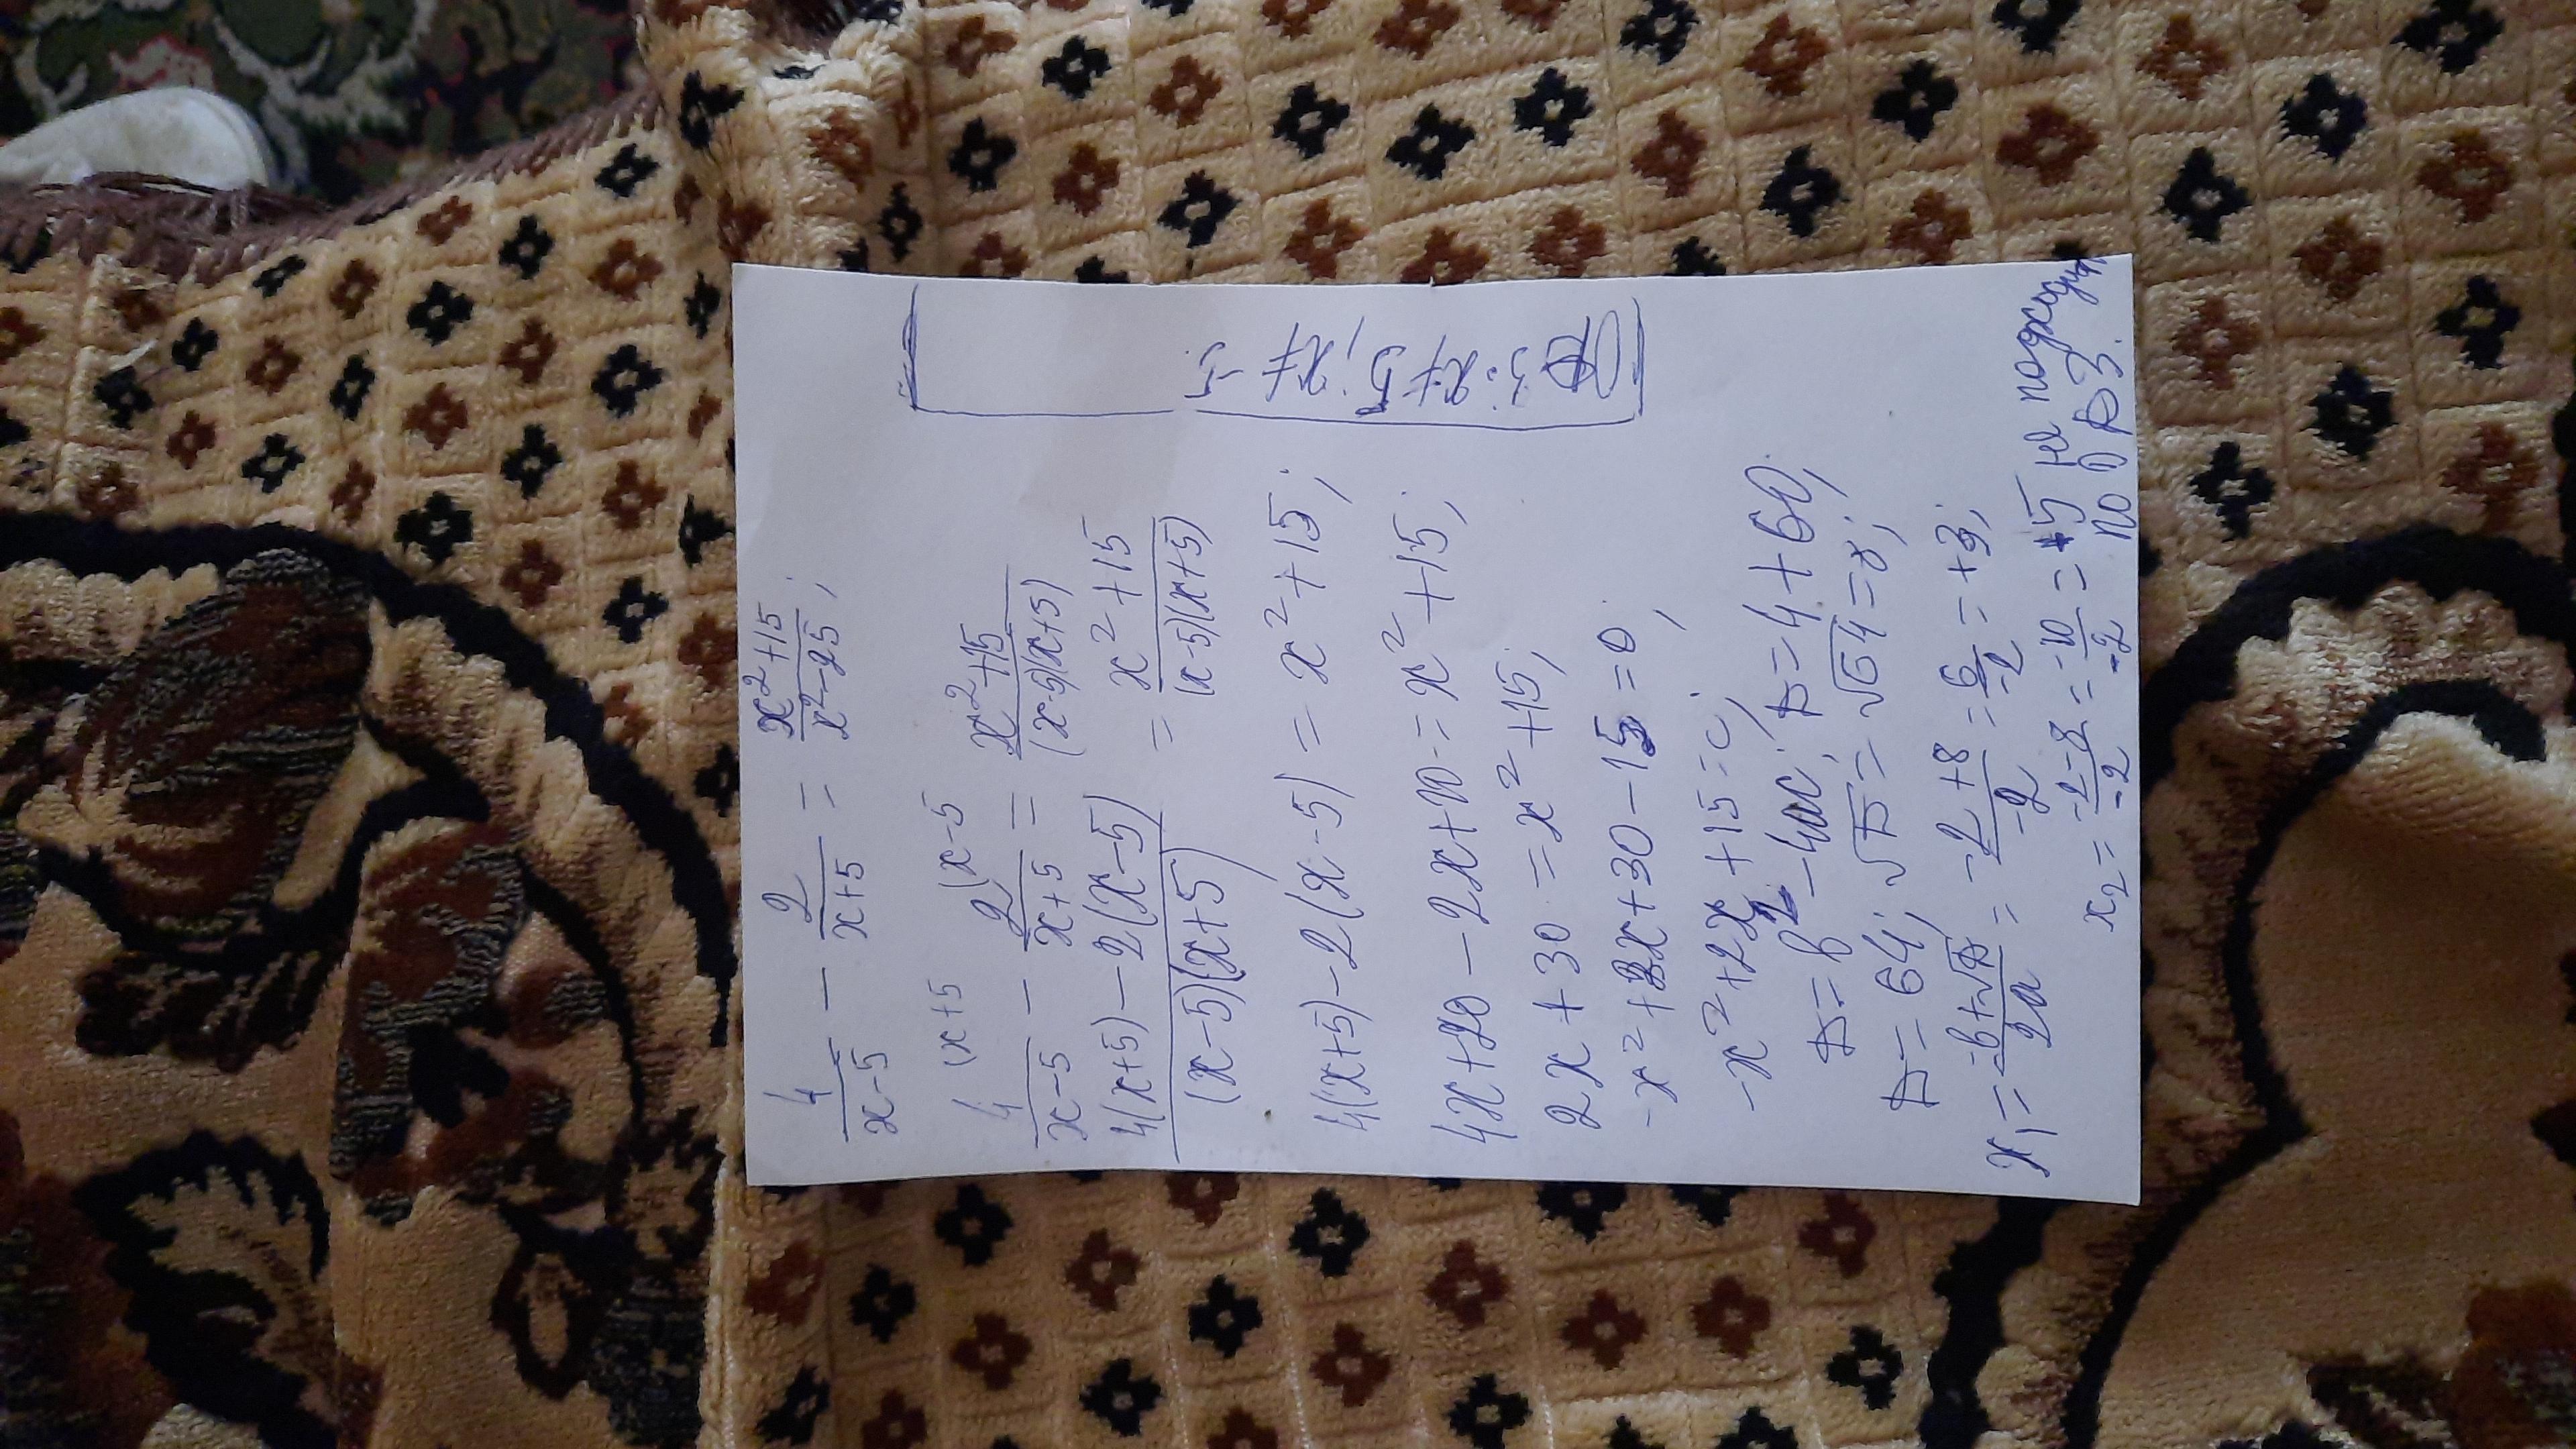 4/(x-5) - 2/(x+5) = (x²+15)/(x²-25);
(x+5 (x-5
4/(x-5) - 2/(x+5) = (x²+15)/((x-5)(x+5)
(4(x+5)-2(x-5))/((x-5)(x+5)) = (x²+15)/((x-5)(x+5))
4(x+5)-2(x-5) = x²+15;
4x+20-2x+10=x²+15;
2x+30=x²+15;
-x²+2x+30-15=0;
-x²+2x+15=0;
D=b²-4ac; D=4+60;
D=64; √D=√64=8;
x₁=(-b+√D)/2a = (-2+8)/-2 = 6/-2 = +3;
x₂= (-2-8)/-2 = -10/-2 = +5 не подходит
по ОДЗ.
ОДЗ: x≠5; x≠-5